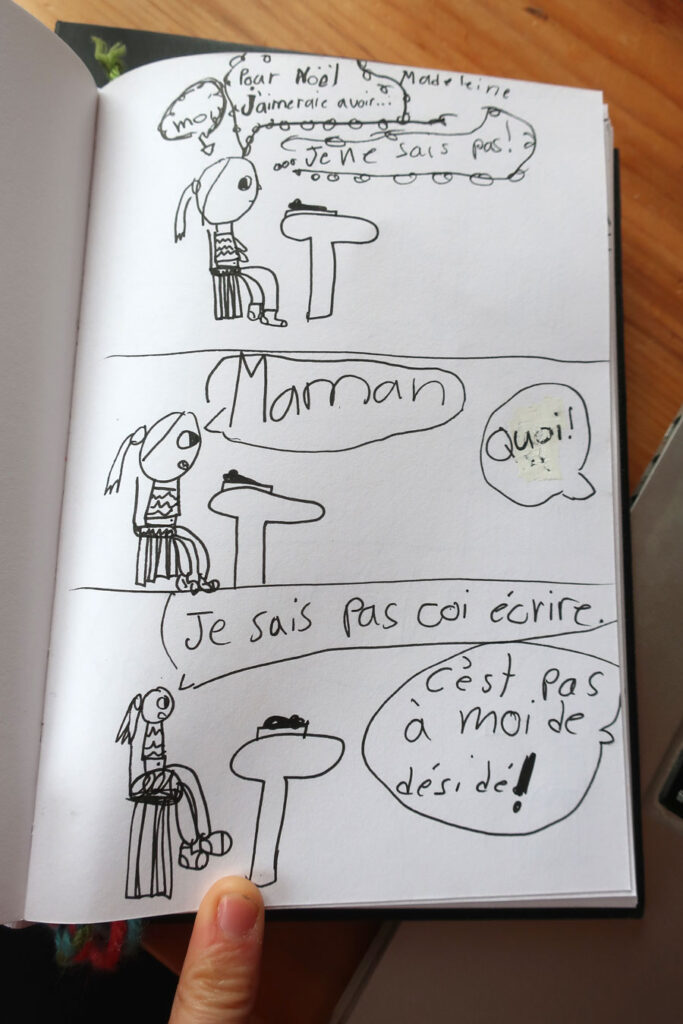 Pour Noël
j'aimeraie avoir...
Madeleine
moi
Je ne sais pas!
Maman
Quoi!
Je sais pas coi écrire.
c'est pas
à moi de
désidé!